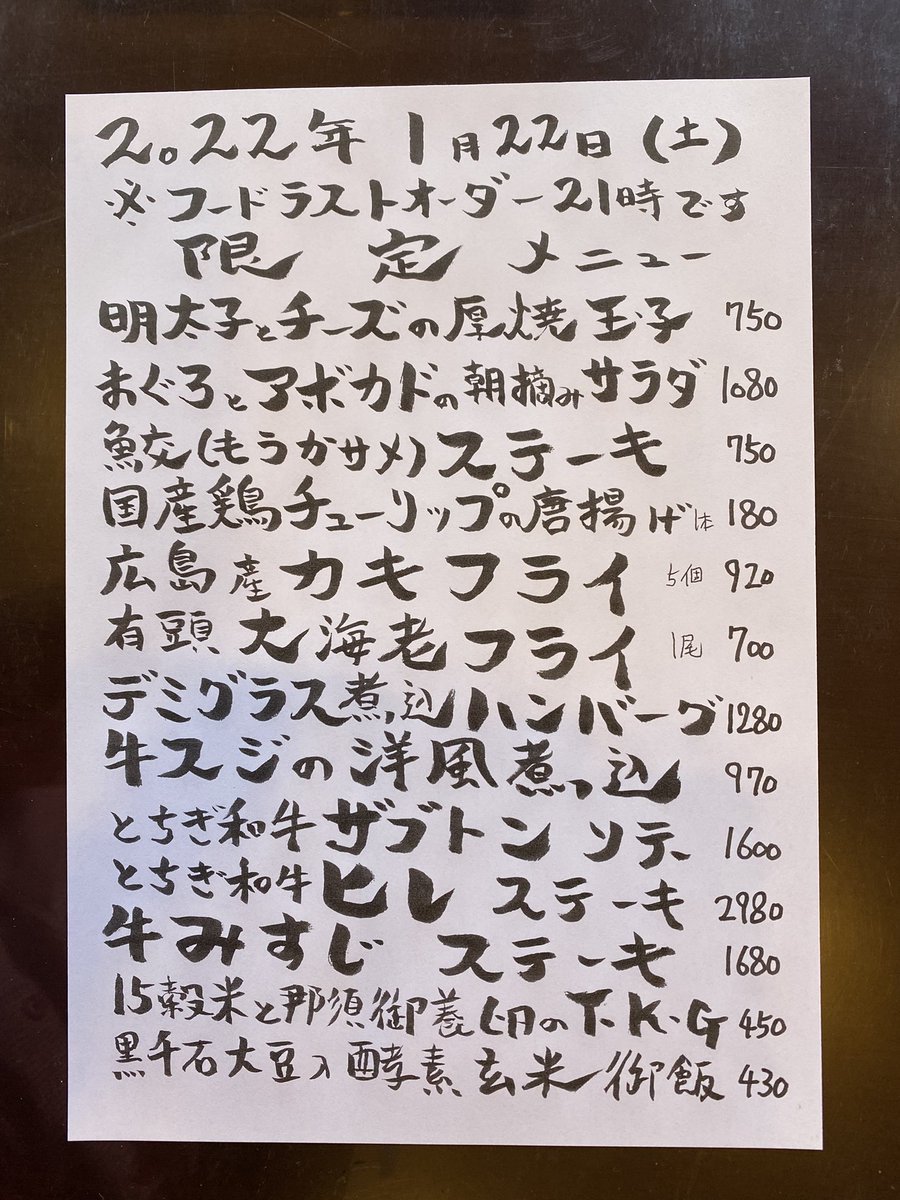 2022年 1月22日(土)
※フードラストオーダー21時です
限定メニュー
明太子とチーズの厚焼玉子 750
まぐろとアボカドの朝摘みサラダ 1080
鮫(もうかサメ)ステーキ 750
国産鶏チューリップの唐揚げ1本 180
広島産カキフライ 5個 920
有頭大海老フライ 1尾 700
デミグラス煮込ハンバーグ 1280
牛スジの洋風煮っ込 970
とちぎ和牛ザブトンソテー 1600
とちぎ和牛ヒレステーキ 2980
牛みすじステーキ 1680
15穀米と那須御養卵のT.K.G 450
黒千石大豆入酵素玄米御飯 430